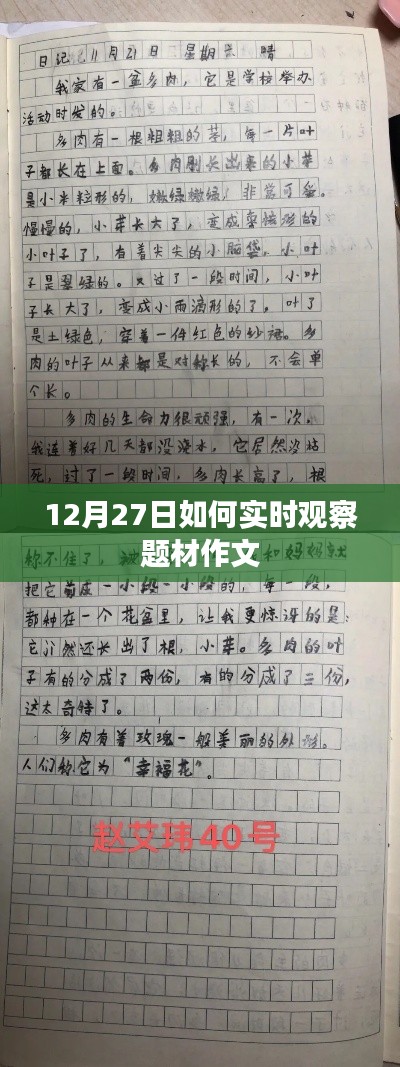 日记 11月21日 星期 晴
我家有一盆多肉，它是学校举办
活动时发的。
多肉有一根粗粗的茎，每一片叶
子都长在上面。多肉刚长出来的小芽
是小米粒形的，嫩绿嫩绿，非常可爱
慢慢的，小芽长大了，变成形的
小叶子了，有着尖尖的小脑袋，小叶
子是翠绿的。又过了一段时间，小叶
子长大了，变成小雨滴形的了，叶子
是土绿色，穿着一件红色的纱裙。多
肉的叶子从来都是对称长的，不会单
个长。
多肉的生命力很顽强，有一次，
我连着好几天都没浇水，它居然没枯
死，过了一段时间，多肉长高了，根
12月27日如何实时观察
题材作文
和妈妈就
把它剪成一小段一小段的，每一段，
都种在一个花盆里，让我更惊讶的是：
它介然还长出了根，小芽。多肉的叶
子有的分成了两份，有的分成了三份，
这太奇特了。
多肉有着玫瑰一般美丽的外形。
人们称它为“幸福花”。
赵艾玮40号